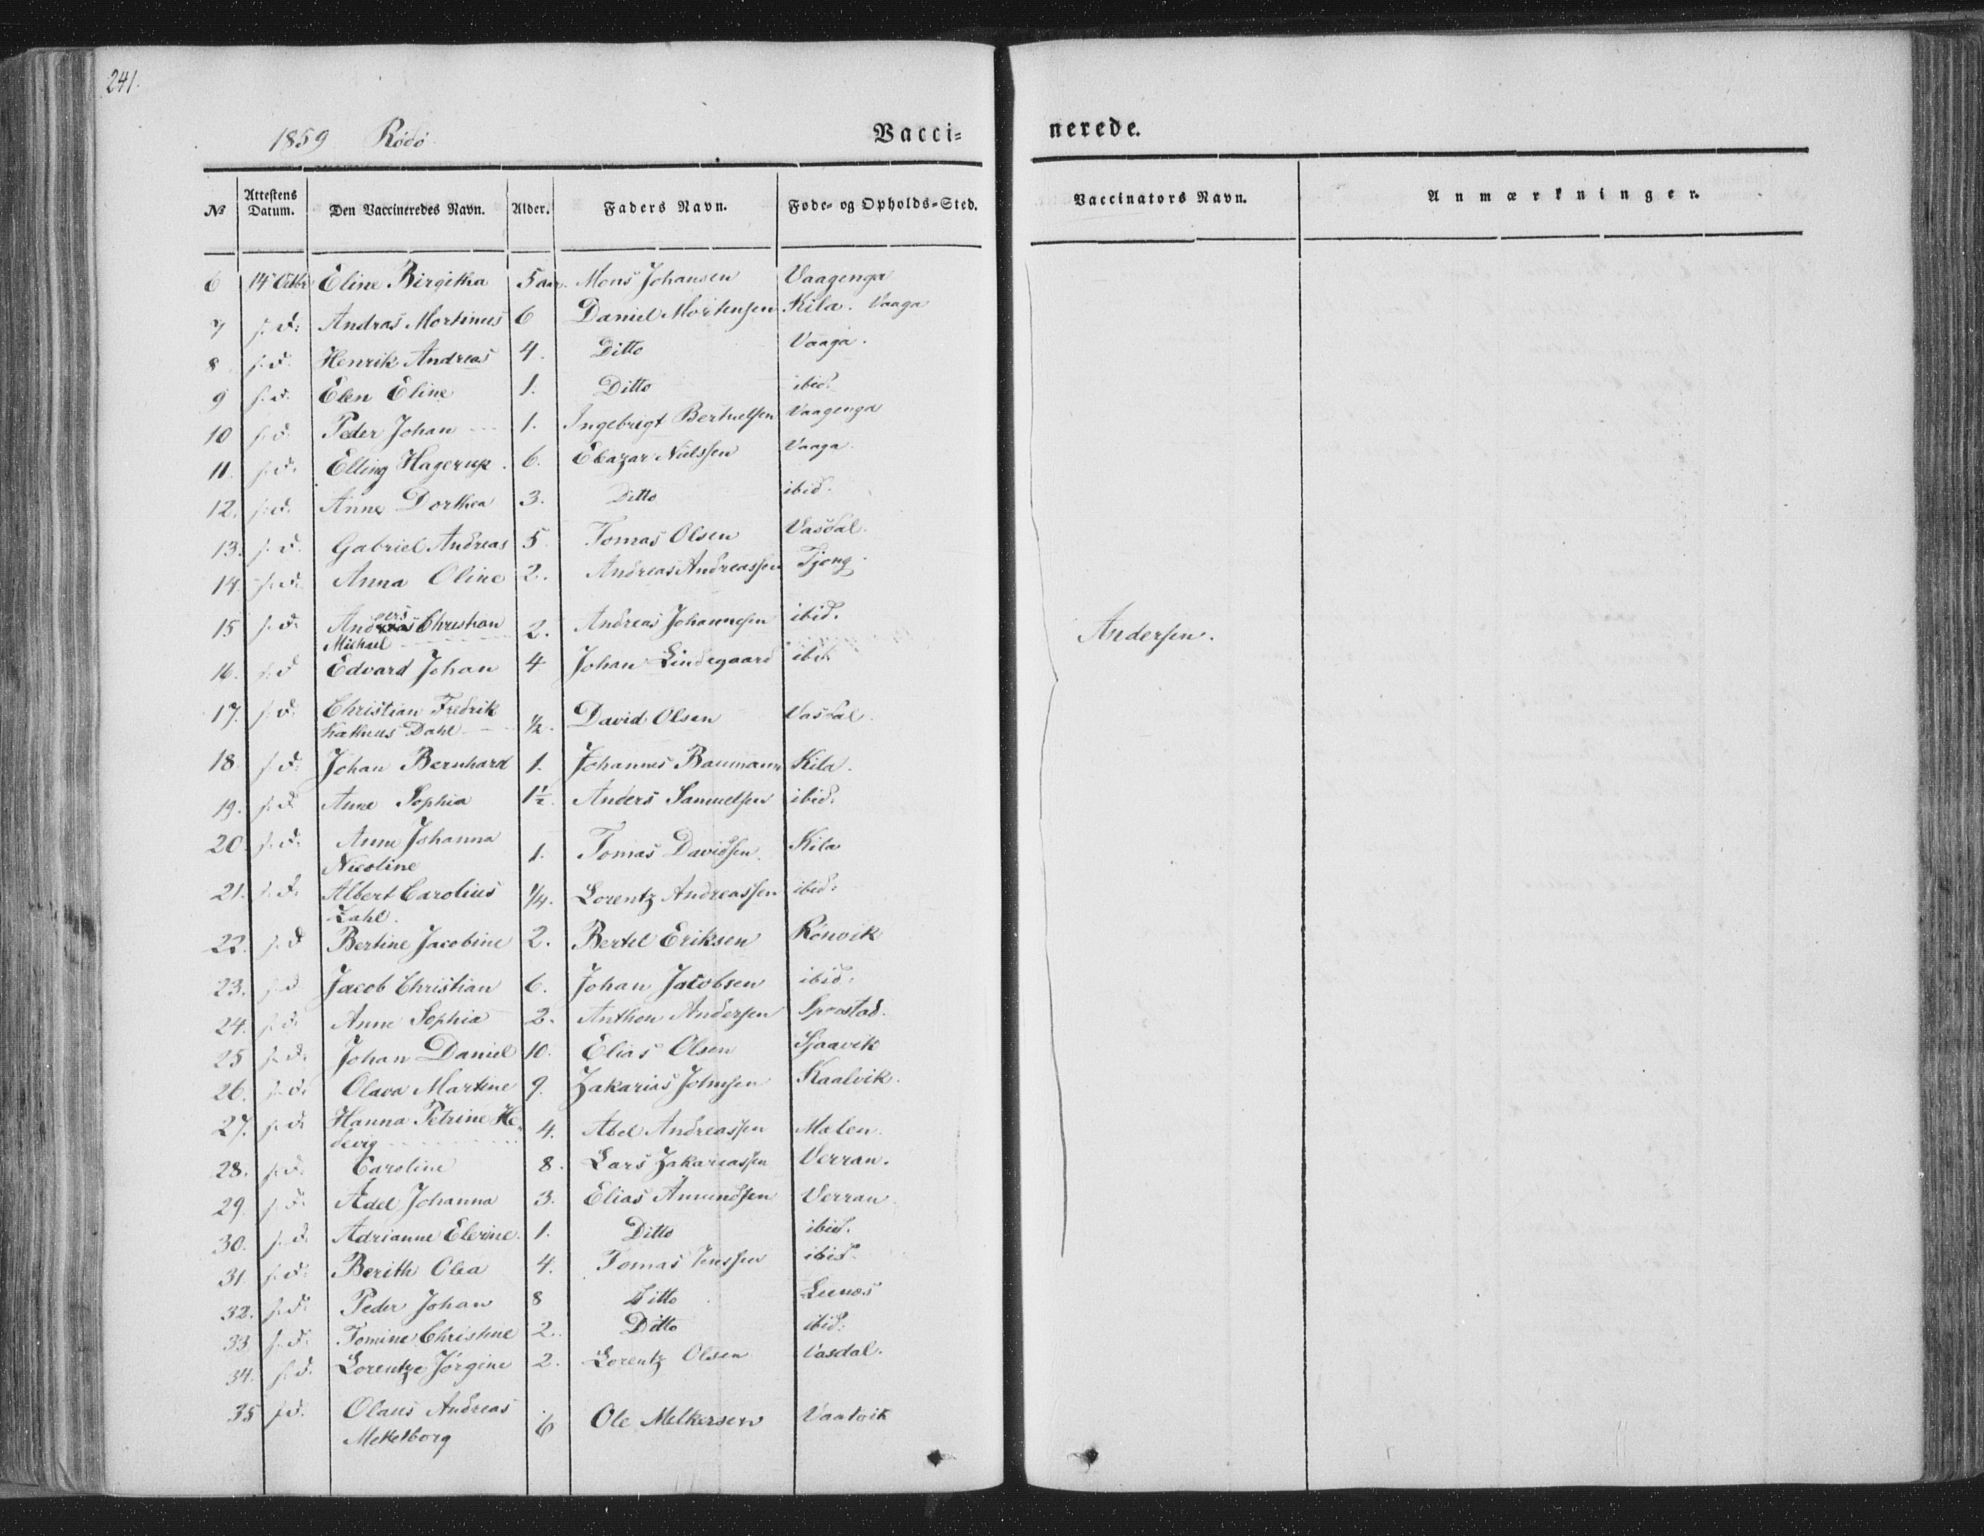 241.
1859 Rödö Vacci= nerede.
No Attestens Datum. Den Vaccineredes Navn. Alder. Faders Navn. Føde- og Opholds-Sted. Vaccinators Navn. Anmærkninger.
6 14 Octbr Eline Birgitha 5 aar. Mons Johansen Vaagenga
7 s. d. Andras Mortinus 6 Daniel Mortensen Kila. Vaaga
8 s. d. Henrik Andreas 4. Ditto Vaaga.
9 s. d. Elen Eline 1. Ditto ibid.
10 s. d. Peder Johan 1. Ingebrigt Berthelsen Vaagenga
11. s. d. Elling Hagerup. 6. Eleazar Nielssen Vaaga.
12. s. d. Anne Dorthea 3. Ditto ibid.
13. s. d. Gabriel Andreas 5 Tomas Olsen Vasdal.
14 s. d. Anna Oline 2. Andreas Andreassen Tjong.
15 s. d. Anders Christian 2. Andreas Johannesen ibid. Andersen.
Michael
16. s. d Edvard Johan 4 Johan Lindegaard ibid
17. s. d. Christian Fredrik
Dahl ½. David Olsen Vasdal.
18 s. d. Johan Bernhard 1. Johannes Baumann Kila.
19. s. d. Anne Sophia 1½. Anders Samuelsen ibid.
20. s. d. Anne Johanna 1. Tomas Davidsen. Kila
Nicoline
21. s. d. Albert Carolius ¼. Lorentz Andreassen ibid.
Zahl.
22. s. d Bertine Jacobine 2. Bertel Eriksen Rönvik
23. s. d Jacob Christian 6. Johan Jacobsen ibid.
24. s. d. Anne Sophia 2. Anthon Andersen Sprostad.
25 s. d. Johan Daniel 10. Elias Olsen Sjaavik
26. s. d. Olava Martine 9. Zakarias Johnsen Kaalvik.
27. s. d. Hanna Petrine He-
devig 4. Abel Andreassen Malen.
28. s. d. Caroline 8. Lars Zakariassen Verran.
29. s. d. Adel Johanna 3. Elias Amundsen Verran
30. s. d. Adrianne Elerine. 1. Ditto ibid.
31. s. d. Berith Olea 4. Tomas Jenssen ibid.
32. s. d. Peder Johan 8 Ditto Lunøs
33. s. d. Tomine Christine 2. Ditto ibid.
34. s. d. Lorentze Jörgine 2. Lorentz Olsen Vasdal.
35 s. d. Olaus Andreas 6 Ole Melkersen Vaatvik
Mekelborg